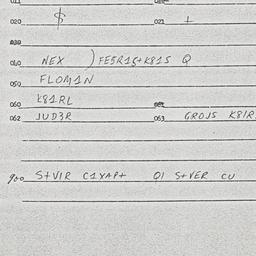 020 $ 021 t
030
040 NEX ) FE5R1S+K81S Q
050 FLOM1N
060 K81RL
062 JUD3R 063 GROJS K81R
900 S+V1R C1XAP+ Q1 S+VER CU